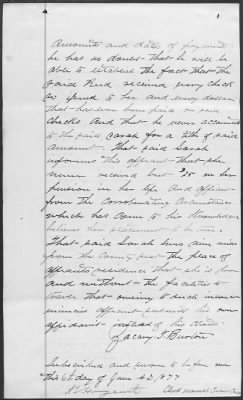 Amounts and date of payment
he has no doubt that he will be
able to establish the fact that the
said Reid received every check
issued to her and every dollar
that has ever been paid on said
checks And that he never accounted
to the said Sarah for a tith of said
amount. That said Sarah
informs this affiant that she
never received but $25 on her
pension in her life And affiant
from the Corroborating Circumstances
which has come to his Knowledge
believes her statement to be true.
That said Sarah lives nine miles
from the County seat the place of
affiants residence that she is poor
and without the facilities to
travel that owing to such
affiant presents his own
affidavit instead of his clients
Zacary T. Burton
Subscribed and sworn to before me
this 6 day of June A.D. 1877
Clerk